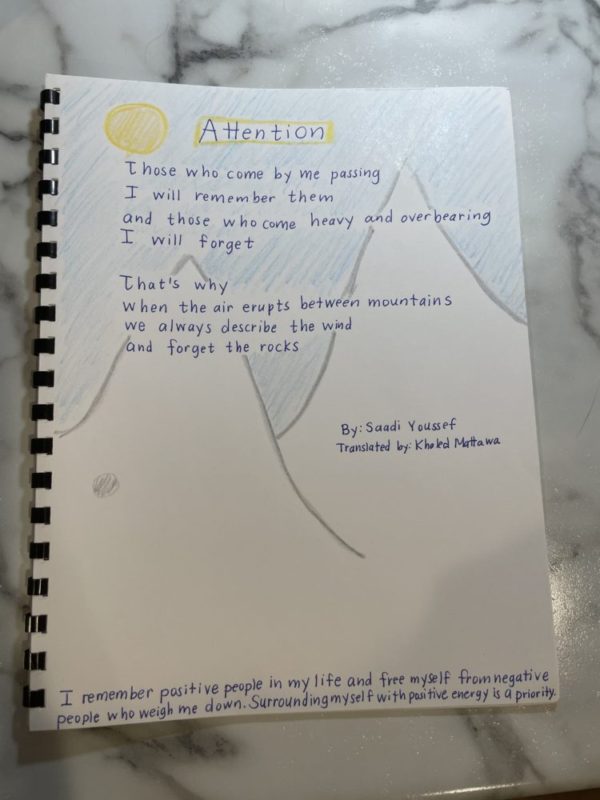 Attention
Those who come by me passing
I will remember them
and those who come heavy and overbearing
I will forget
That's why
when the air erupts between mountains
we always describe the wind
and forget the rocks
By: Saadi Youssef
Translated by: Khaled Mattawa
I remember positive people in my life and free myself from negative
people who weigh me down. Surrounding myself with positive energy is a priority.